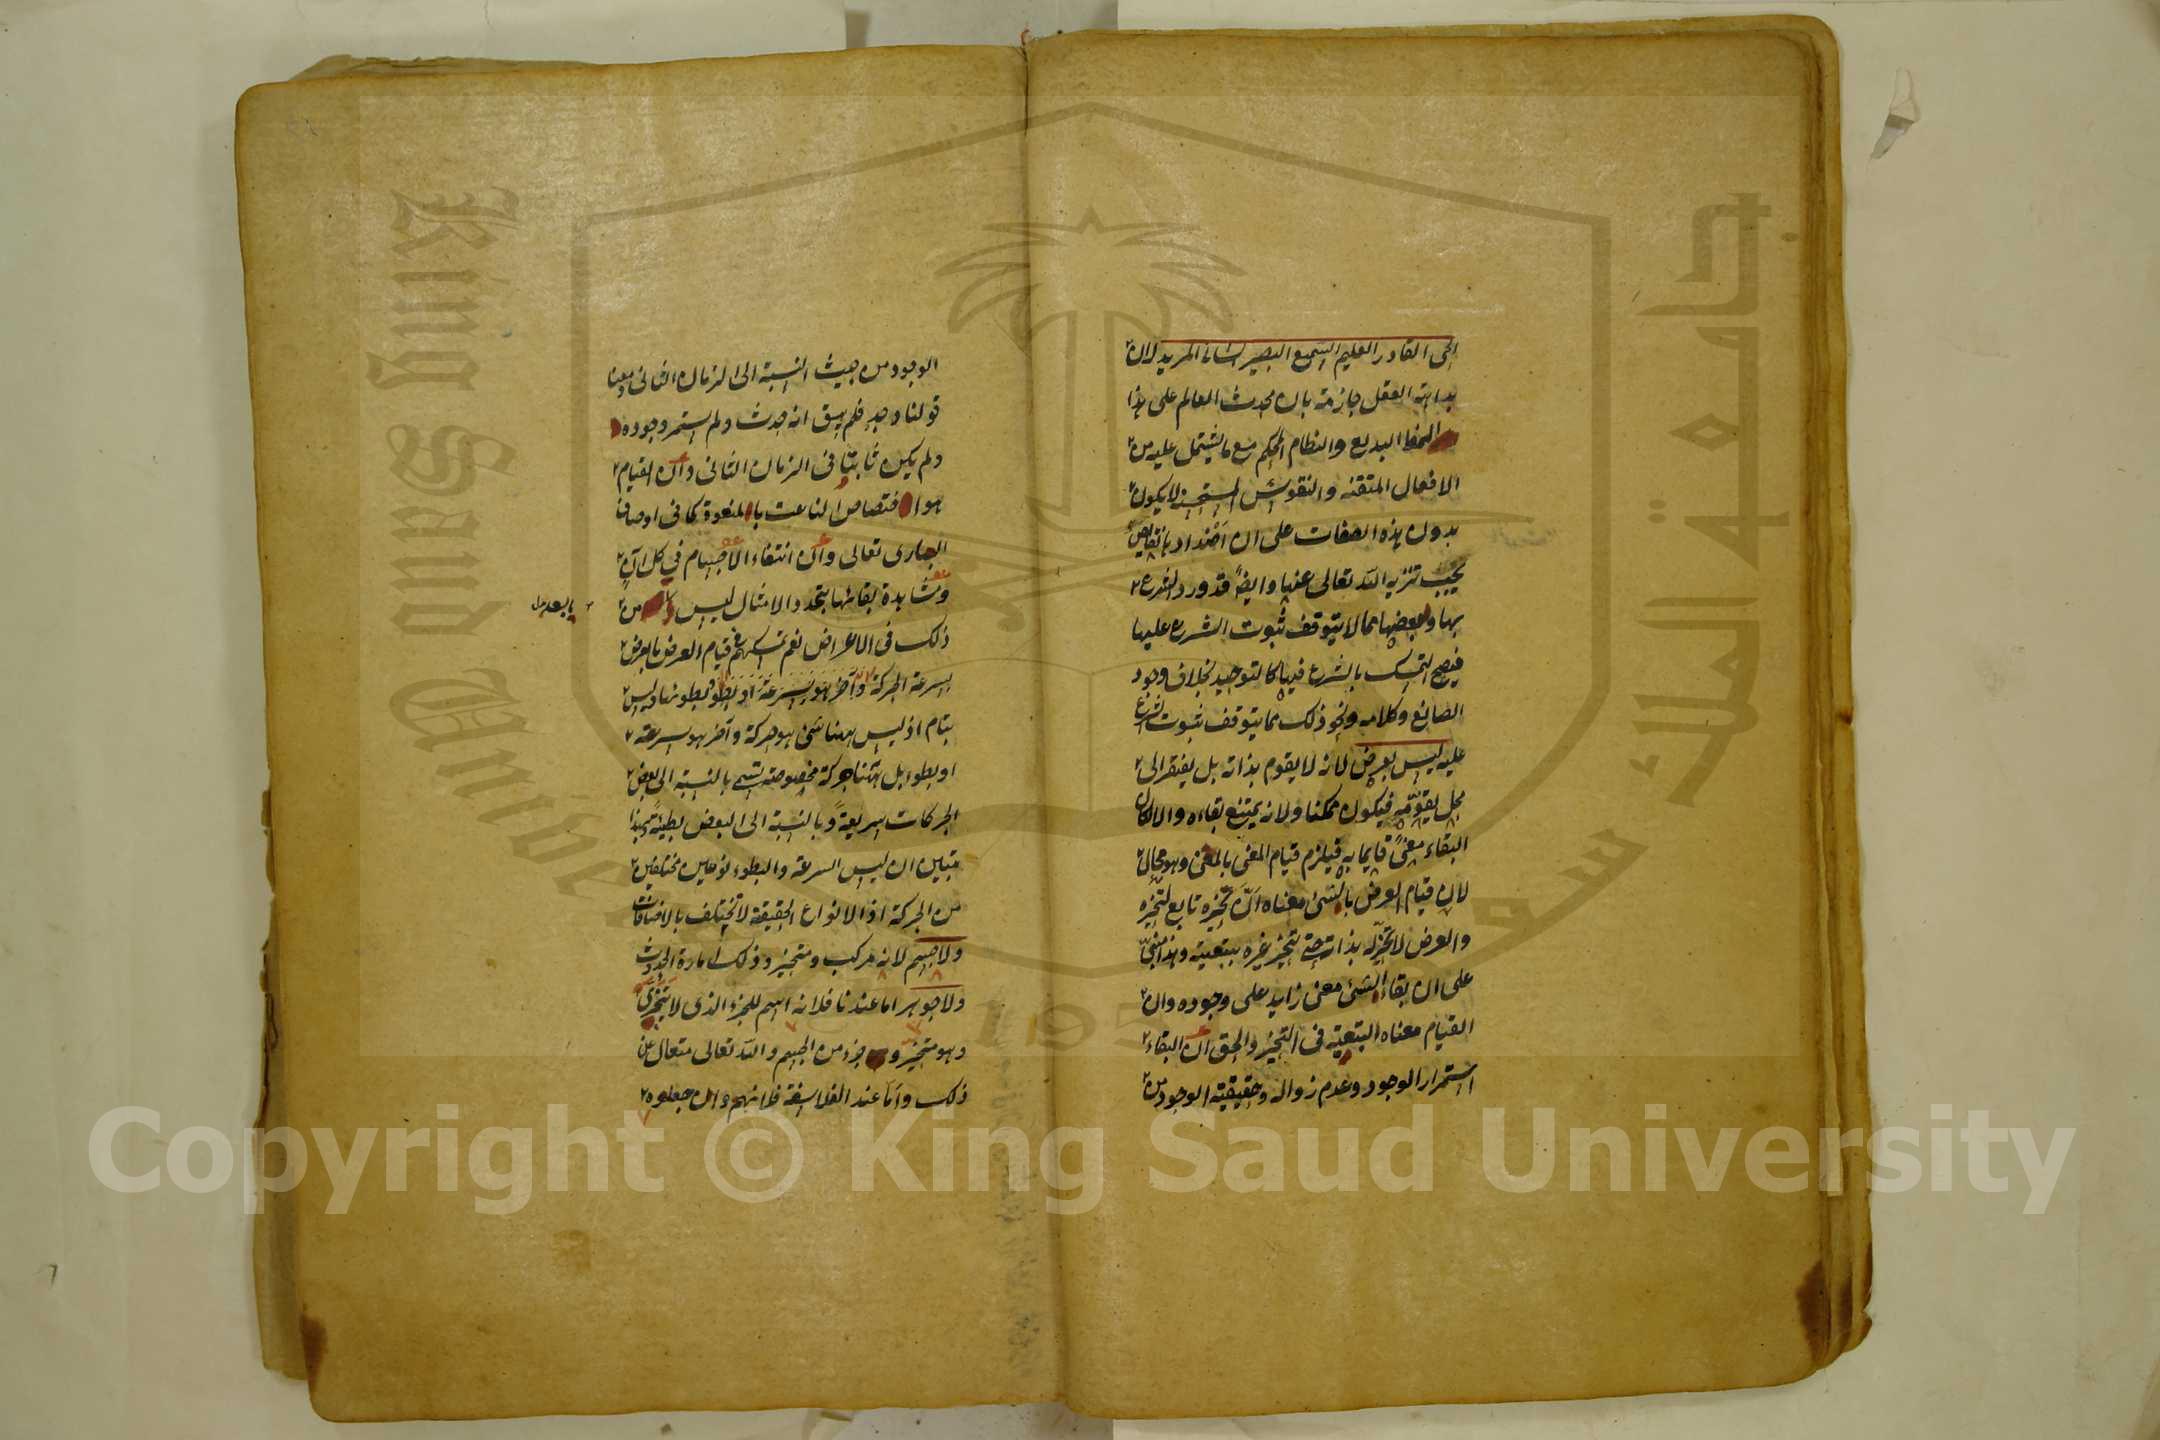 الحى القادر العليم السميع البصير الشائى المريد لان
بداهة العقل جازمة بان محدث العالم على هذا
النمط البديع والنظام المحكم مع ما يشتمل عليه من
الافعال المتقنه والنقوش المستحسنة لا يكون
بدون هذه الصفات على ان اضدادها نقايص
يجب تنزيه الله تعالى عنها وايضً قد ورد الشرع
بها وبعضها مما لا يتوقف ثبوت الشرع عليها
فيصح التمسك بالشرع فيها كالتوحيد بخلاف وجود
الصانع وكلامه ونحو ذلك مما يتوقف ثبوت الشرع
عليه ليس بعرض لانه لا يقوم بذاته بل يفتقر الى
محل يقوّمه فيكون ممكنا ولانه يمتنع بقاءه والا لكان
البقاء معنًى قايما به فيلزم قيام المعنى بالمعنى وهو محال
لان قيام العرض بالشئ معناه انّ تحيّزه تابع لتحيّزه
والعرض لا تحيّز له بذاته حتى يتحيز غيره بتبعيته وهذا مبنىّ
على ان بقاء الشئ معنى زايد على وجوده وان
القيام معناه التبعية فى التحيّز والحق ان البقاء
استمرار الوجود وعدم زواله وحقيقته الوجود من
الوجود من حيث النسبة الى الزمان الثانى ومعنا
قولنا وجد فلم يبق انه حدث ولم يستمر وجوده
ولم يكن ثابتًا فى الزمان الثانى وان القيام
هو اختصاص الناعت بالمنعوة كما فى اوصاف
البارى تعالى وان انتفاء الاجسام فى كل آن
ومشاهدة بقائها بتجدد الامثال ليس من
بابعد
ذلك فى الاعراض نعم تمسكهم فى قيام العرض بالعرض
بسرعة الحركة وبطوئها وليس
بتام اذ ليس ههنا شئ هو حركة وآخر هو سرعة
او بطوا بل هٰهنا حركة مخصوصة تسمى بالنسبة الى بعض
الحركات سريعةً وبالنسبة الى البعض بطيئةً وبهذا
يتبين ان ليس السرعة والبطوء نوعين مختلفين
من الحركة اذ الانواع الحقيقة لا تختلف بالاضافات
ولا جسم لانه مركب ومتحيز وذلك امارة الحدوث
ولا جوهر اما عندنا فلانه اسم للجزء الذى لا يتجزى
وهو متحيز و جزء من الجسم والله تعالى متعال عن
ذلك وامّا عند الفلاسفة فلانهم وان جعلوه
Copyright © King Saud University
King Saud University
جامعة الملك سعود
195